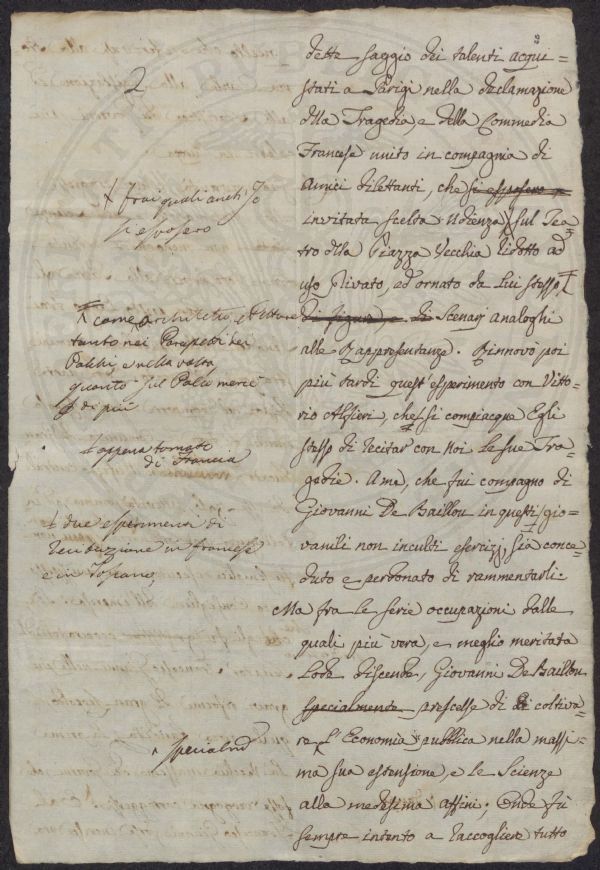 2
dette saggio dei talenti acqui=
stati a Parigi nella declamazione
della Tragedia, e della Commedia
Francese unito in compagnia di
Amici dilettanti, che si esposero a
invitata scelta Udienza sul Tea=
tro della Piazza Vecchia ridotto ad
uso privato, ed ornato da lui stesso
di figura, e di Scenarj analoghi
alle Rappresentanze. Rinnovò poi
più tardi quest'esperimento con Vitto=
rio Alfieri, che si compiacque Egli
stesso di recitar con noi le sue Tra=
gedie. A me, che fui compagno di
Giovanni De Baillou in questi gio=
vanili non inculti esercizj sia conce=
duto e perdonato di rammentarli.
Ma fra le serie occupazioni dalle
quali più vera, e meglio meritata
Lode discende, Giovanni De Baillou
specialmente prescelse di coltiva=
re l'Economia pubblica nella massi=
ma sua estensione, e le Scienze
alla medesima affini; Onde fù
sempre intento a raccogliere tutto
2
frai quali anch'Io
si esposero
come Architetto, e Pittore
tanto nei Parapetti dei
Palchi, e nella volta
quanto sul Palco
di più
appena tornato
di Francia
due esperimenti di
in francese
e in Toscano
specialmte